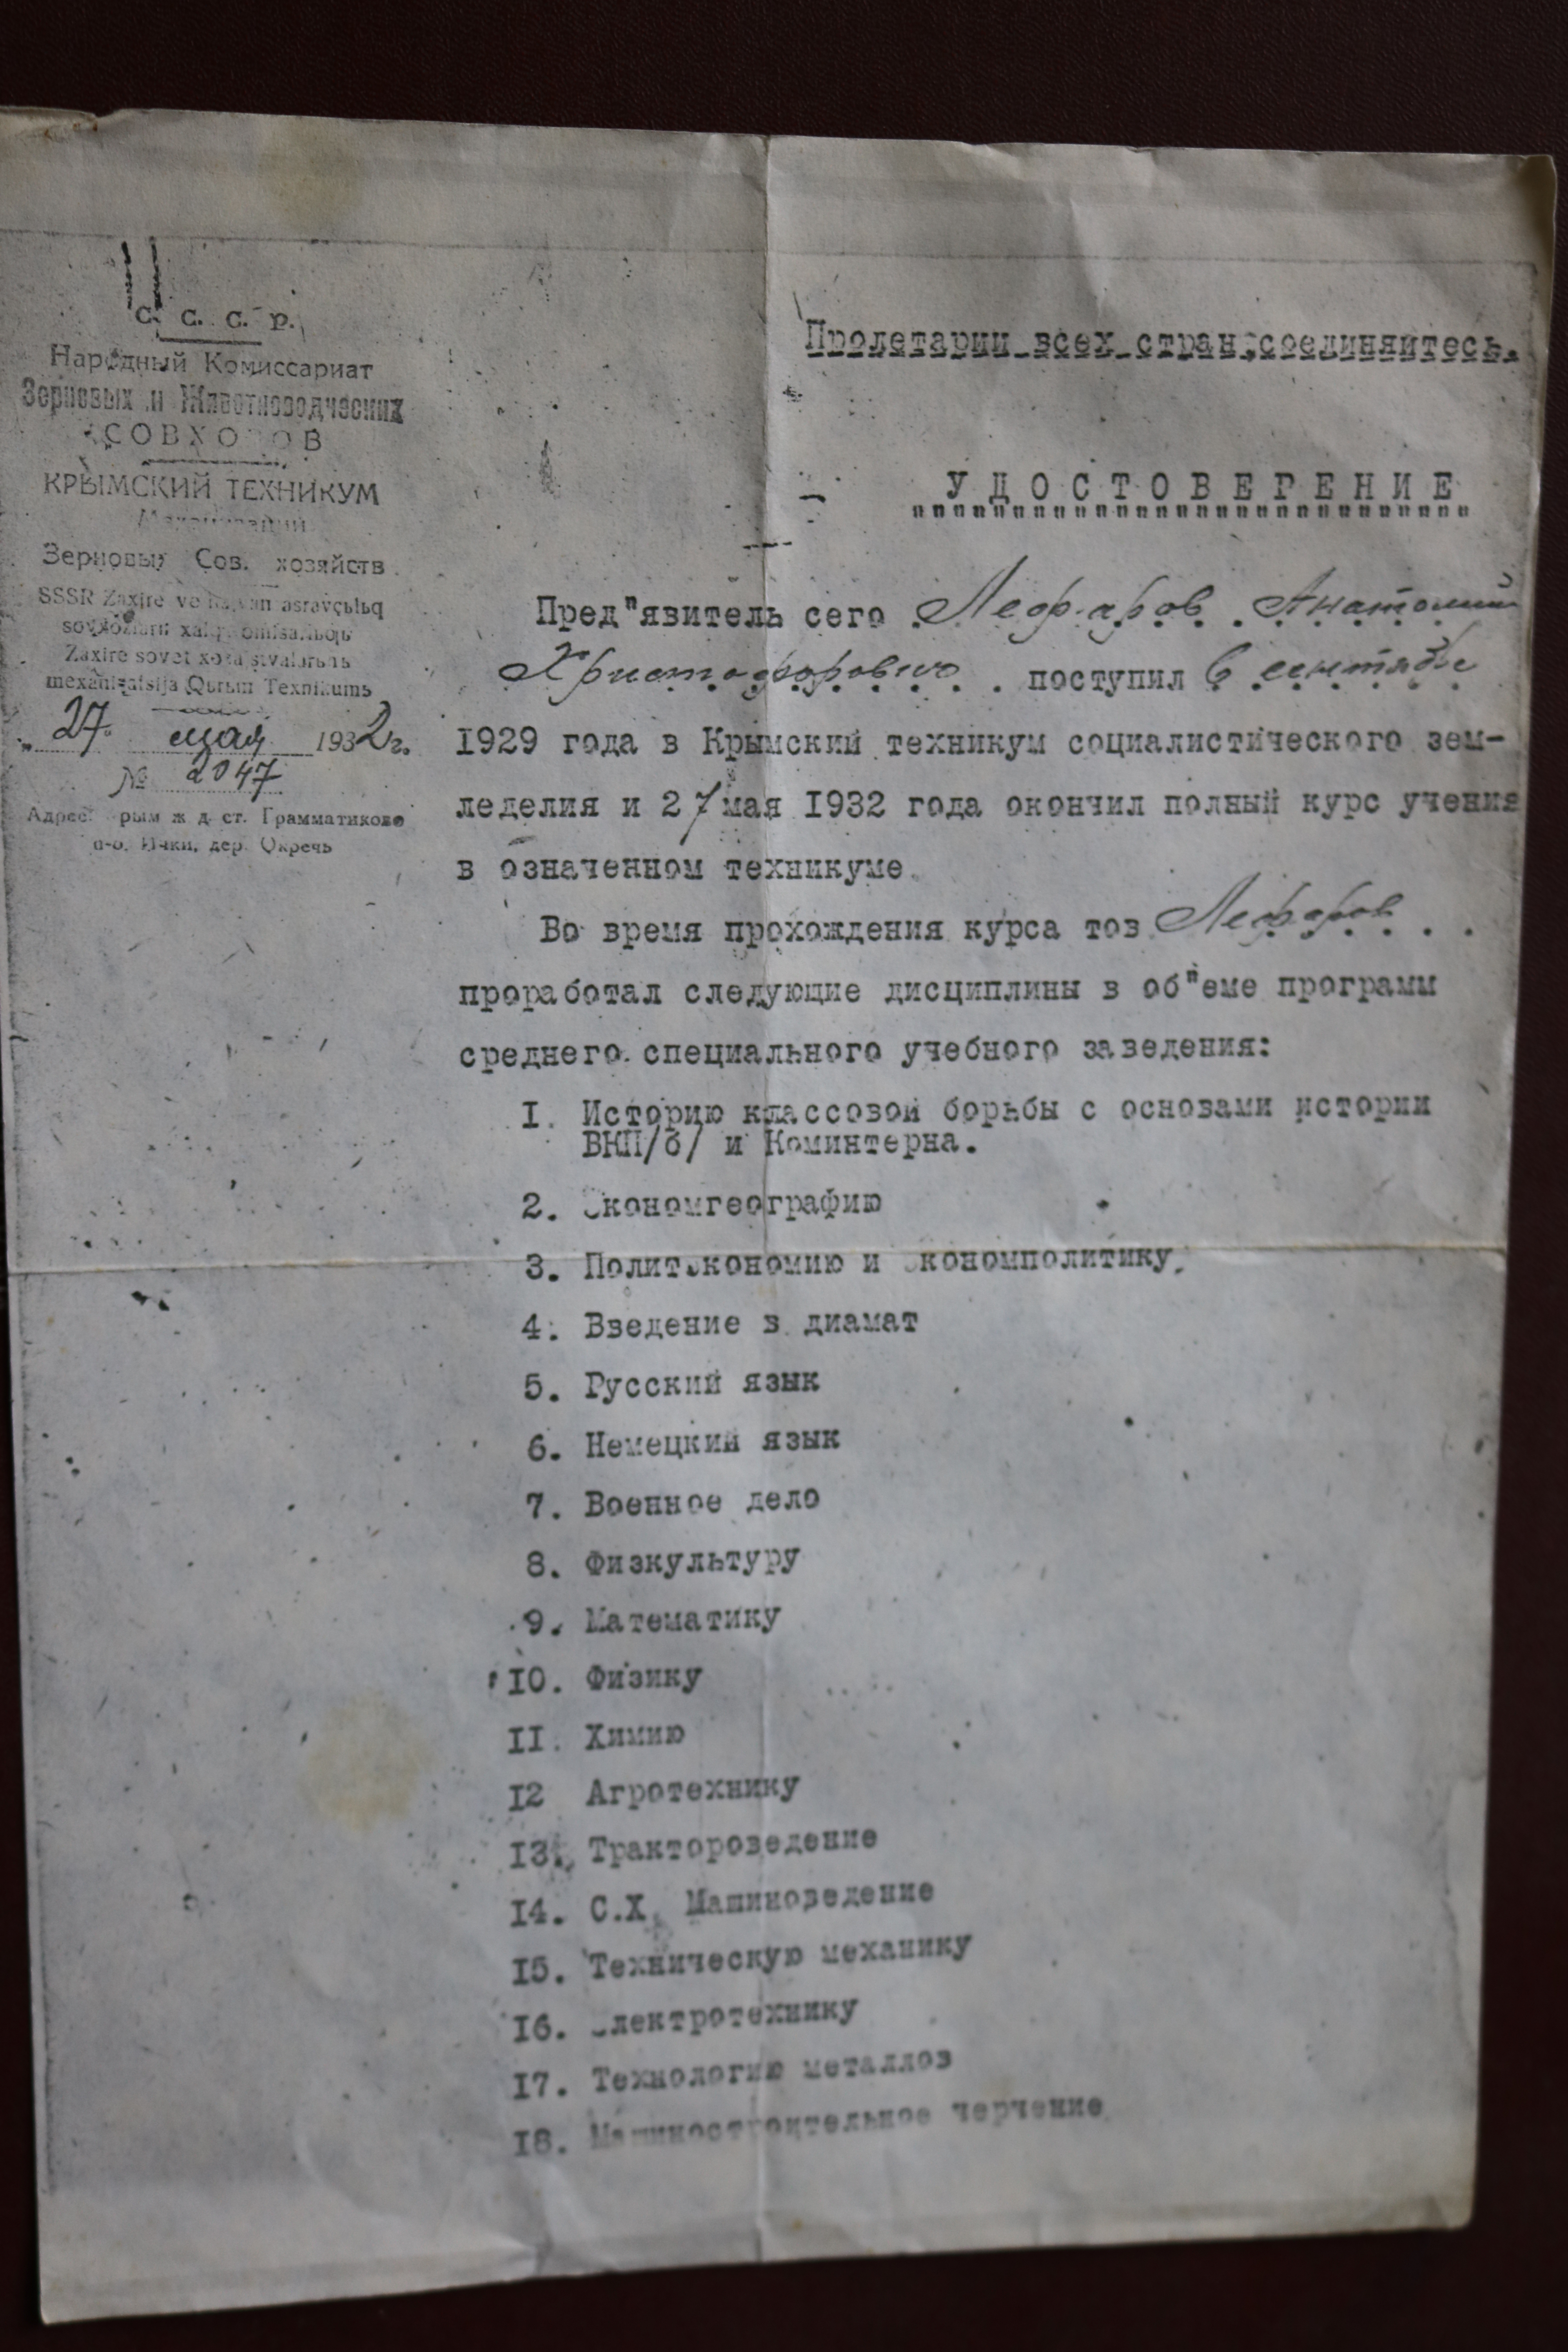 С. С. С. Р.
Народный Комиссариат
Зерновых и Животноводческих
СОВХОЗОВ
КРЫМСКИЙ ТЕХНИКУМ
Механизации
Зерновых Сов. хозяйств
SSSR Zaxire ve asravçьlьq
Zaxire sovet
Qьrьm Texnikumь
„27“ мая 1932 г.
№ 2047
Адрес: Крым ж д ст. Грамматиково
п-о. Ички, дер. Окречь
Пролетарии всех стран,соединяйтесь.
УДОСТОВЕРЕНИЕ
Пред"явитель сего Лефаров Анатолий
Христофорович поступил в сентябре
1929 года в Крымский техникум социалистического зем-
леделия и 27 мая 1932 года окончил полный курс учения
в означенном техникуме.
Во время прохождения курса тов Лефаров
проработал следующие дисциплины в об"еме программ
среднего специального учебного заведения:
I. Историю классовой борьбы с основами истории
ВКП/б/ и Коминтерна.
2. Экономгеографию
3. Политэкономию и экономполитику.
4. Введение в диамат
5. Русский язык
6. Немецкий язык
7. Военное дело
8. Физкультуру
9. Математику
I0. Физику
II. Химию
I2 Агротехнику
I3. Трактороведение
I4. С.Х. Машиноведение
I5. Техническую механику
I6. Электротехнику
I7. Технологию металлов
I8. Машиностроительное черчение